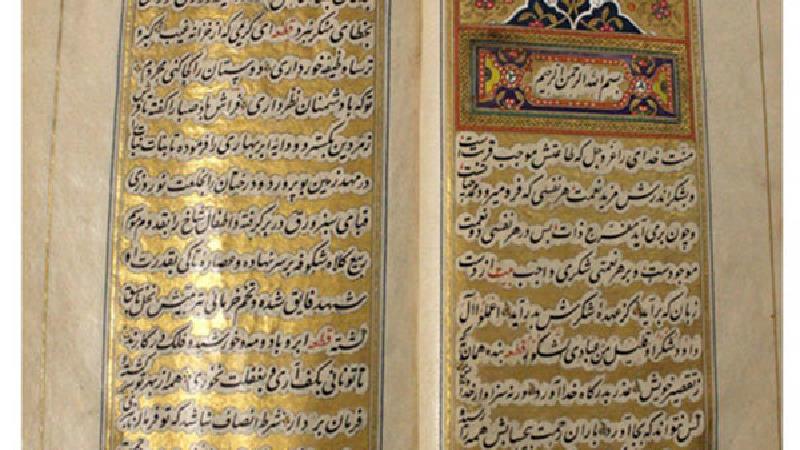 بسم الله الرحمن الرحیم
منت خدای را عز و جل که طاعتش موجب قربتست
و بشکر اندرش مزید نعمت هر نفسی که فرو میرود حیاتست
و چون برمی آید مفرح ذات پس در هر نفسی دو نعمت
موجودست و بر هر نعمتی شکری واجب بیت از دست
زبان که برآید کز عهده شکرش بدر آید اعملوا آل
داود شکرا و قلیل من عبادی الشکور قطعه بنده همان
تقصیر خویش عذر بدرگاه خدا آورد ورنه سزاوار
کس نتواند که بجا آورد باران رحمت بیحسابش همه را
بخطای منکر نبرد قطعه ای کریمی که از خزانه غیب گبر و
ترسا وظیفه خور داری دوستان را کجا کنی محروم
تو که با دشمنان نظر داری فراش باد صبا را گفته
زمردین بگسترد و دایه ابر بهاری را فرموده تا بنات نبات
در مهد زمین بپرورد و درختان را بخلعت نوروزی
قبای سبز ورق در بر گرفته و اطفال شاخ را بقدوم موسم
ربیع کلاه شکوفه بر سر نهاده و عصاره تاکی بقدرت او
شهد فایق شده و تخم خرمایی بتربیتش نخل باسق
گشته قطعه ابر و باد و مه و خورشید و فلک در کارند
تا تو نانی بکف آری و بغفلت نخوری همه از بهر تو سرگشته
فرمان بردار شرط انصاف نباشد که تو فرمان نبری